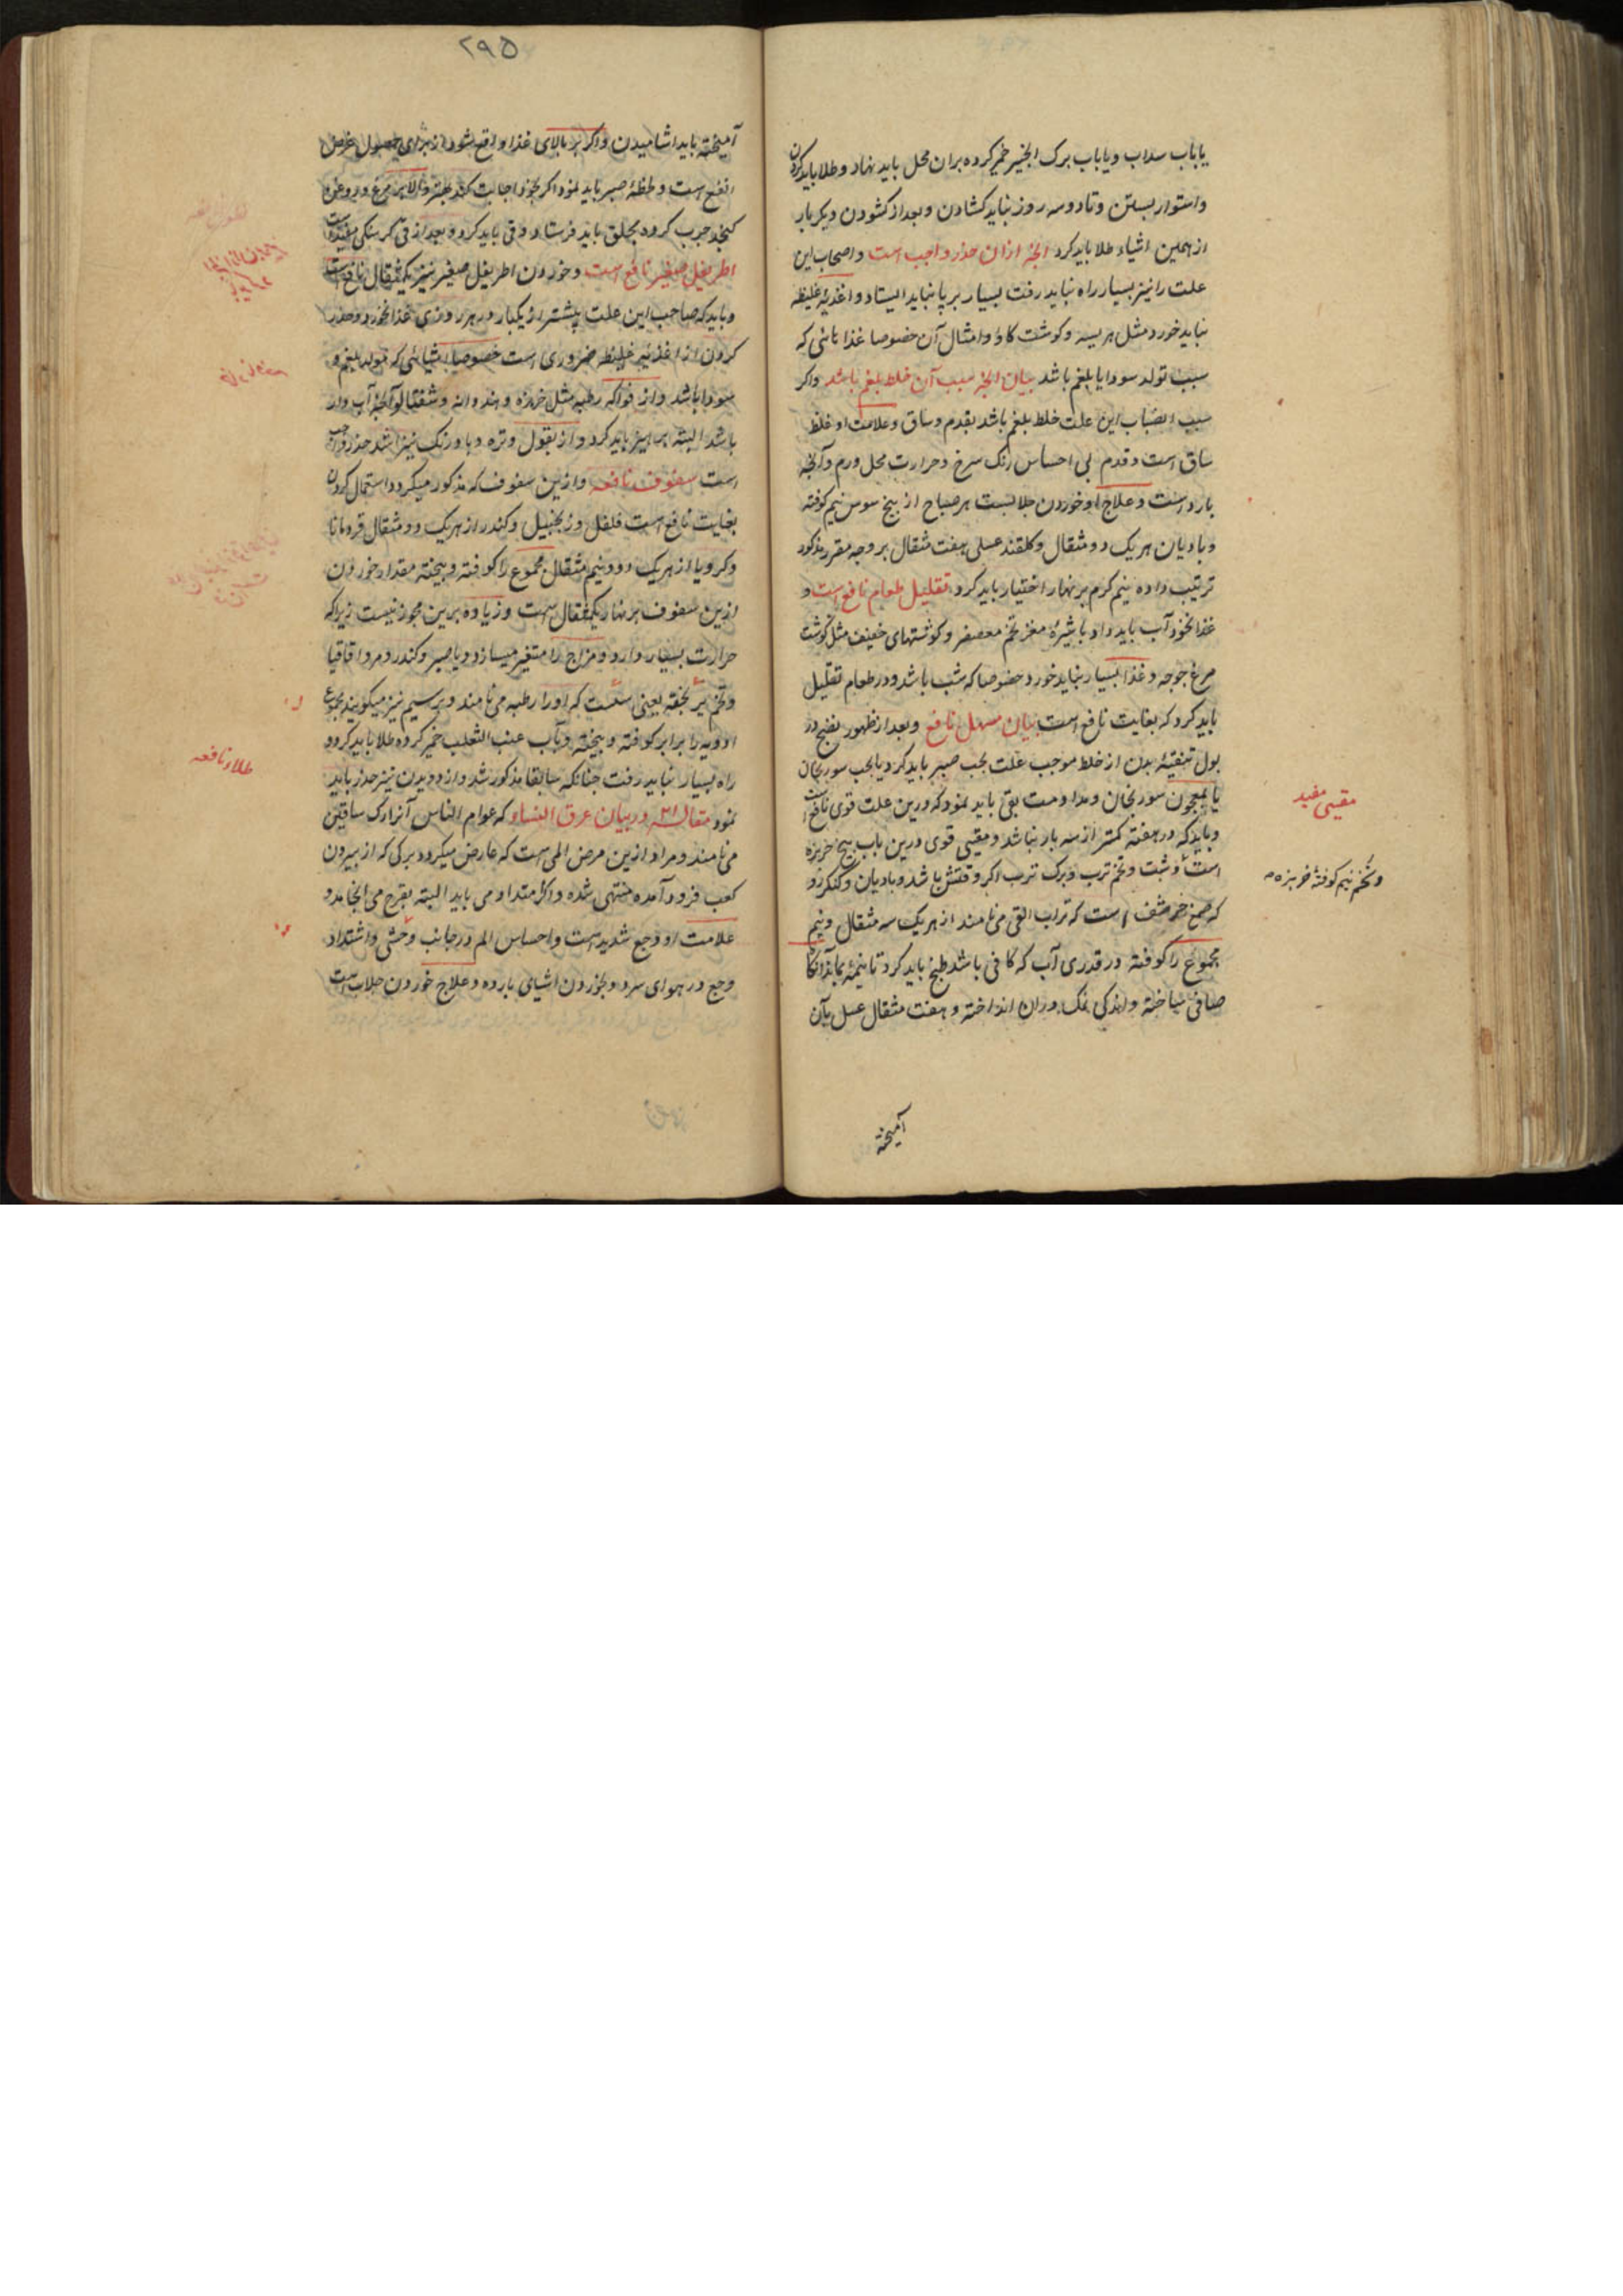 یاباب سداب ویاباب برک انجیر خمیر کرده بران محل باید نهاد وطلا باید کردن
واستوار بستن وتا دو سه روز نباید کشادن وبعد از کشودن دیکر بار
از همین اشیاء طلا باید کرد آنچه ازان حذر واجب است واصحاب این
علت را نیز بسیار راه نباید رفت بسیار بر پا نباید ایستاد واغذیهٔ غلیظه
نباید خورد مثل هریسه وکوشت کاو وامثال آن خصوصا غذا تائی که
سبب تولد سودا یا بلغم باشد بیان آنچه سبب آن خلط بلغم باشد واکر
سبب انصباب این علت خلط بلغم باشد بقدم وساق وعلامت او غلظ
ساق است وقدم بی احساس رنک سرخ وحرارت محل ورم وآنچه
بارد است وعلاج او خوردن جلابست هر صباح از بیخ سوس نیم کوفته
وبادیان هر یک دو مثقال وکلقند عسلی هفت مثقال بر وجه مقرر مذکور
ترتیب داده نیم کرم بر نهار اختیار باید کرد تقلیل طعام نافع است و
غذا نخود آب باید داد با شیرهٔ مغز تخم معصفر وکوشتهای خفیف مثل کوشت
مرغ جوجه وغذا بسیار نباید خورد خصوصا که شب باشد ودر طعام تقلیل
باید کرد که بغایت نافع است بیان مسهل نافع وبعد از ظهور نضج در
بول تنقیهٔ بدن از خلط موجب علت بحب صبر باید کرد یا بحب سورنجان
یا بمعجون سورنجان ومداومت بقی باید نمود که درین علت قوی نافع است
وباید که در هفته کمتر از سه بار نباشد ومقیی قوی درین باب بیخ خربزه
است وشبت وتخم ترب وبرک ترب اکر وقتش باشد وبادیان وکنکرزد
که صمغ خرشف است که تراب القی می نامند از هر یک سه مثقال ونیم
مجموع را کوفته در قدری آب که کافی باشد طبخ باید کرد تا نیمهٔ بماند انکاه
صافی ساخته واندکی نمک دران انداخته وهفت مثقال عسل بآن
مقیی مفید
وتخم نیم کوفتهٔ خربزه
آمیخته
۲۹۵
آمیخته باید اشامیدن واکر بر بالای غذا واقع شود از برای حصول غرض
انفع است ولحظهٔ صبر باید نمود اکر بخود اجابت کند بهتر والا پر مرغ در روغن
کنجد چرب کرده بحلق باید فرستاد وقی باید کرد وبعد از قی کرسنکی مفیدست
اطریفل صغیر نافع است وخوردن اطریفل صغیر نیز یکمثقال نافع است
وباید که صاحب این علت پیشتر از یکبار در هر روزی غذا نخورد وحذر
کردن از اغذیهٔ غلیظه ضروری است خصوصا اشیائی که مولد بلغم و
سودا باشد واز فواکه رطبه مثل خربزه وهندوانه وشفتالو وآنچه آب دار
باشد البته پرهیز باید کرد واز بقول وتره وبادرنک نیز اشد حذر واجب
است سفوف نافعه وازین سفوف که مذکور میکردد استعمال کردن
بغایت نافع است فلفل وزنجبیل وکندر از هر یک دو مثقال قردمانا
وکرویا از هر یک دو ونیم مثقال مجموع را کوفته وبیخته مقدار خوردن
ازین سفوف بر نهار یکمثقال است وزیاده برین مجوز نیست زیرا که
حرارت بسیار دارد ومزاج را متغیر میسازد ویا صبر وکندر ومر واقاقیا
وتخم یر بخفته یعنی سئست که اورا رطبه می نامند وبرسیم نیز میکویند مجموع
ادویه را برابر کوفته وبیخته وبآب عنب الثعلب خمیر کرده طلا باید کرد و
راه بسیار نباید رفت چنانکه سابقا مذکور شد واز دویدن نیز حذر باید
نمود مقاله ۳۱ در بیان عرق النسا و که عوام الناس آنرا رک ساقین
می نامند ومراد ازین مرض المی است که عارض میکردد برکی که از بیرون
کعب فرود آمده منتهی شده واکر امتداد می یابد البته بقرح می انجامد و
علامت او وجع شدید است واحساس الم در جانب وحشی واشتداد
وجع در هوای سرد وبخوردن اشیای بارده وعلاج خوردن جلاب است
طلاء نافعه